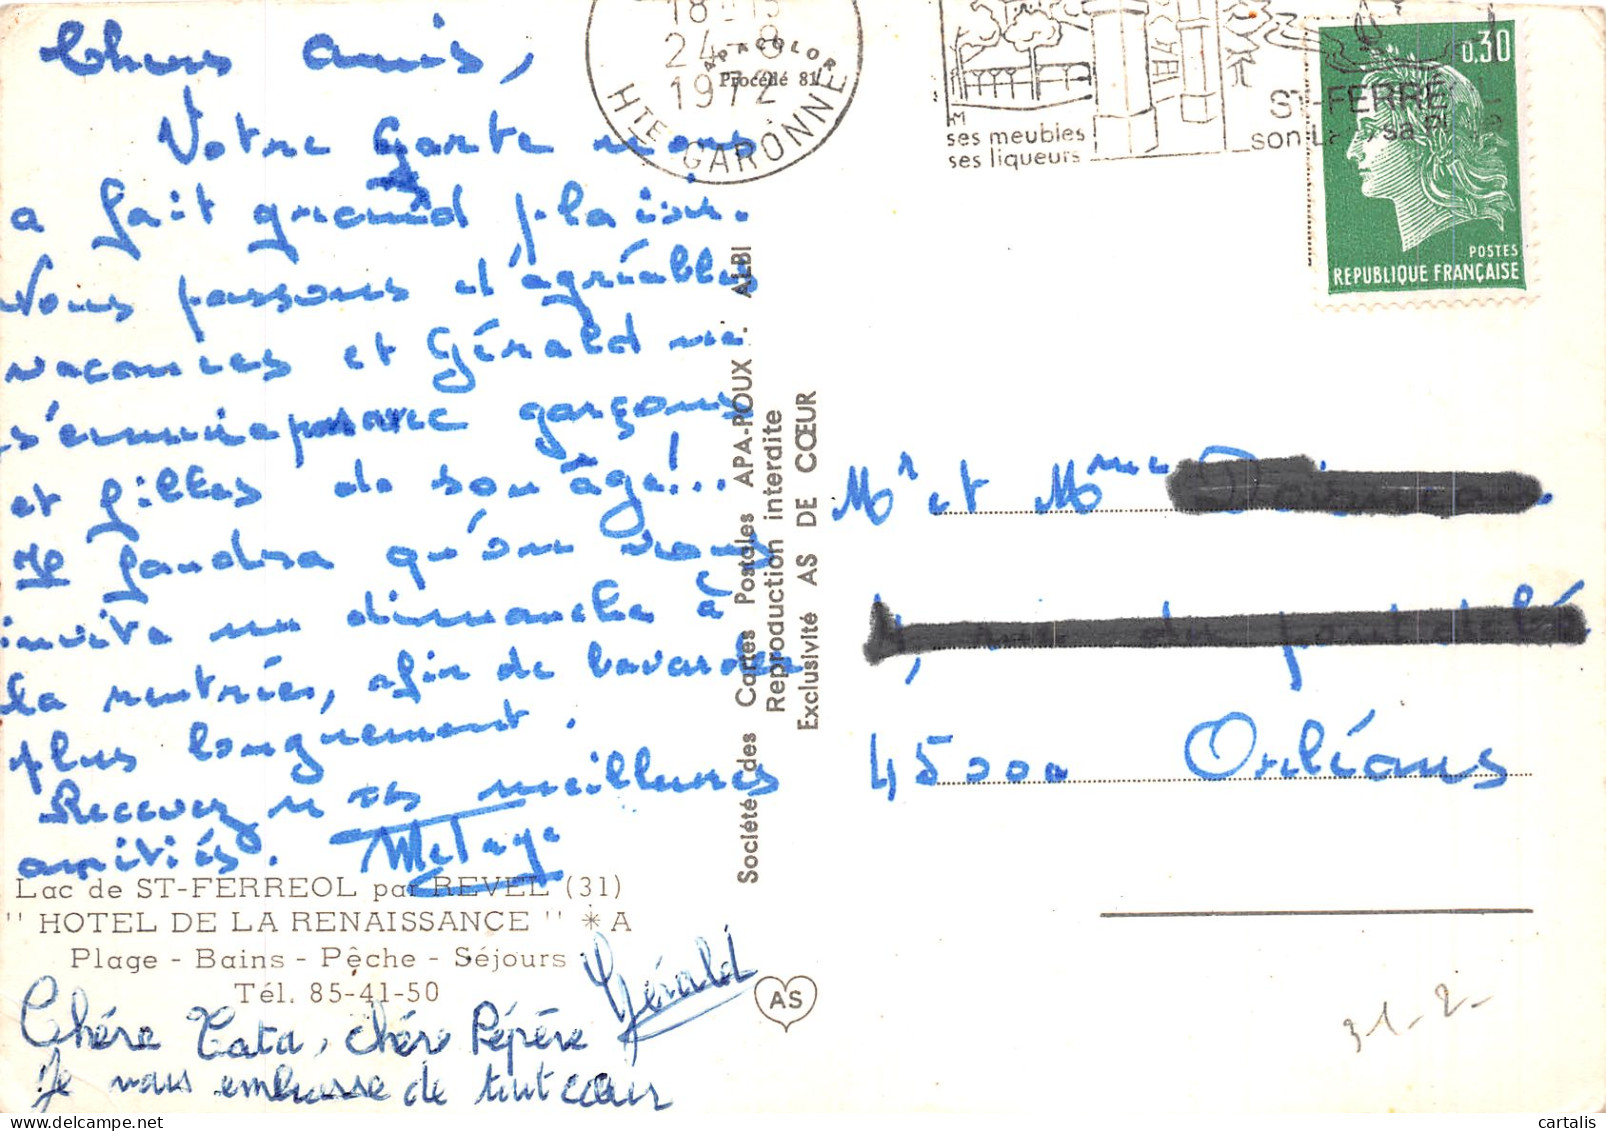 Chers amis,
Votre carte nous
a fait grand plaisir.
Nous passons d'agréables
vacances et Gérald ne
s'ennuie pas avec garçons
et filles de son âge!..
Il faudra qu'on vous
invite un dimanche à
la rentrée, afin de bavarder
plus longuement.
Recevez nos meilleures
amitiés.
Lac de ST-FERREOL par REVEL (31)
" HOTEL DE LA RENAISSANCE " * A
Plage - Bains - Pêche - Séjours
Tél. 85-41-50
Chère Tata, chère Pépère
Je vous embrasse de tout cœur
Gérald
18 15
24 - 8
1972
HTE GARONNE
APACOLOR
Procédé 81
ses meubles
ses liqueurs
ST-FERRE
son sa
0,30
POSTES
REPUBLIQUE FRANÇAISE
Société des Cartes Postales APA-POUX - ALBI
Reproduction interdite
Exclusivité AS DE CŒUR
AS
Mr et Mme
45000 Orléans
31-2-
cartalis.com